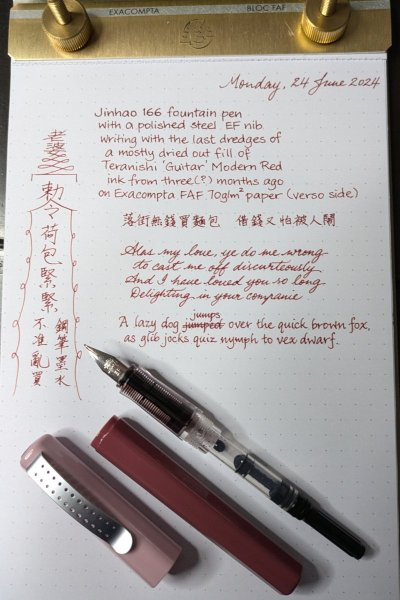 EXACOMPTA
BLOC FAF
Monday, 24 June 2024
Jinhao 166 fountain pen
with a polished steel EF nib
writing with the last dredges of
a mostly dried out fill of
Teranishi 'Guitar' Modern Red
ink from three(?) months ago
on Exacompta FAF 70g/m² paper (verso side)
落街無錢買麵包 借錢又怕被人鬧
Alas my love, ye do me wrong
to cast me off discurteously
And I have loved you so long
Delighting in your companie
A lazy dog jumped jumps over the quick brown fox,
as glib jocks quiz nymph to vex dwarf.
老婆
勅令荷包緊緊
鋼筆墨水
不准亂買